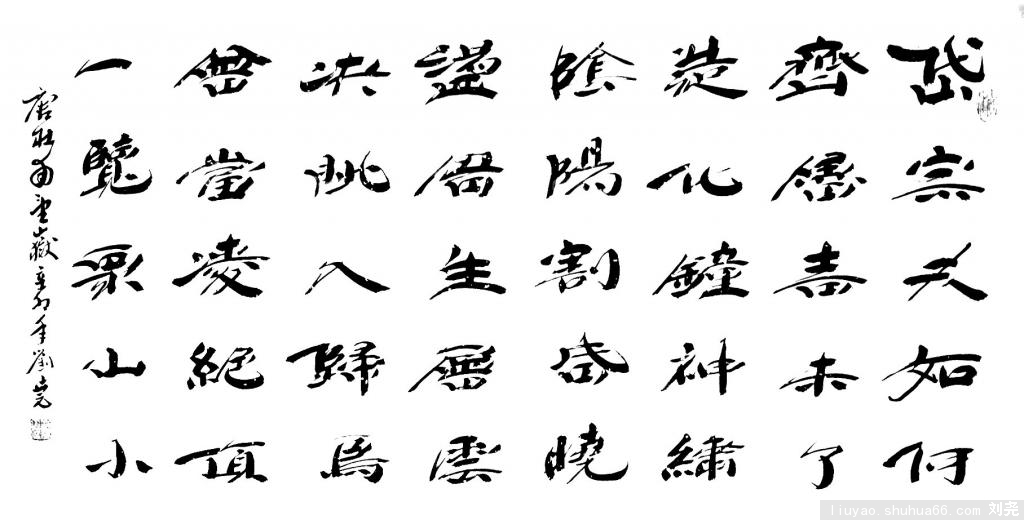 岱宗夫如何
齊魯青未了
造化鐘神繡
陰陽割昏曉
盪胷生層雲
決眦入歸鳥
會當凌絕頂
一覽眾山小
唐杜甫望嶽辛卯年劉堯
liuyao.shuhua66.com 刘尧